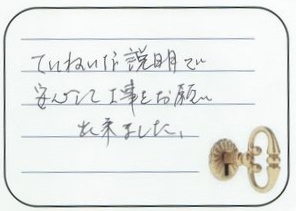 ていねいな説明で
安心して工事をお願い
出来ました、